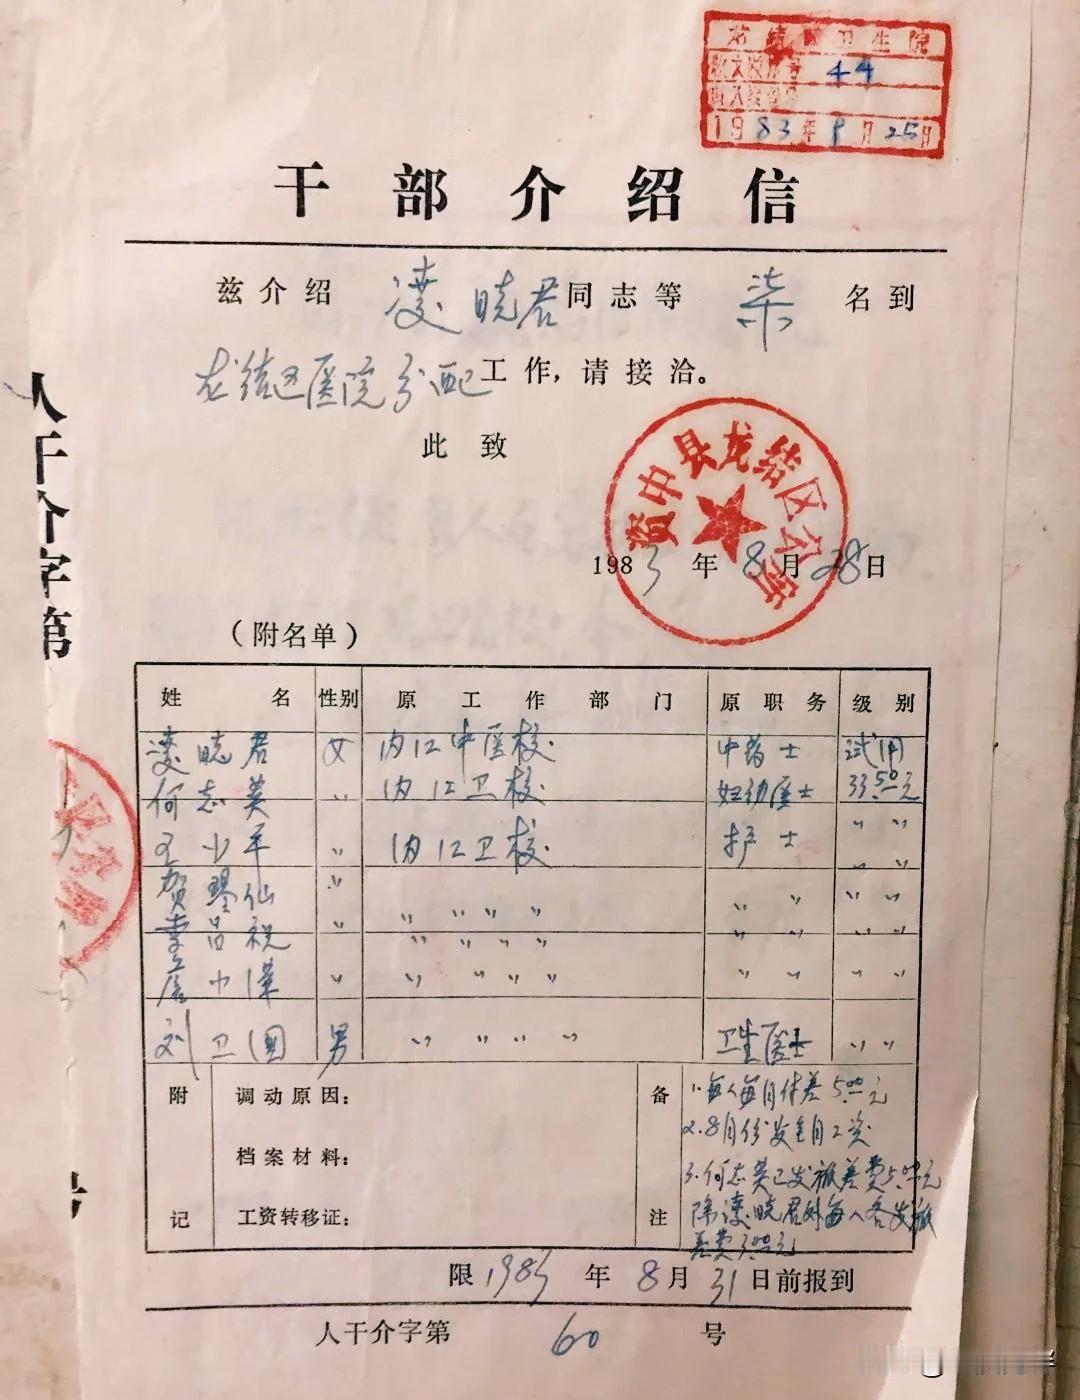 龙结区卫生院
收文 44
1983年8月25日
干部介绍信
兹介绍 凌晓君 同志等 柒 名到
龙结区医院分配工作，请接洽。
此致
资中县龙结区公所
1983年8月28日
（附名单）
姓名 性别 原工作部门 原职务 级别
凌晓君 女 内江中医校 中药士 试用
何志英 〃 内江卫校 妇幼医士 33.50元
王小平 〃 内江卫校 护士 〃 〃
贺琴仙 〃 〃 〃 〃 〃 〃 〃 〃 〃
李吕祝 〃 〃 〃 〃 〃 〃 〃 〃 〃
小 〃 〃 〃 〃 〃 〃 〃 〃 〃
刘卫国 男 〃 〃 〃 〃 卫生医士 〃 〃
附记
调动原因：
档案材料：
工资转移证：
备注
1.每人每月付差5.00元
2.8月份发全月工资
3.何志英已发旅差费5.00元
除凌晓君外每人各发旅
差费3.00元
限1983年8月31日前报到
人干介字第 60 号
人干介字第
号